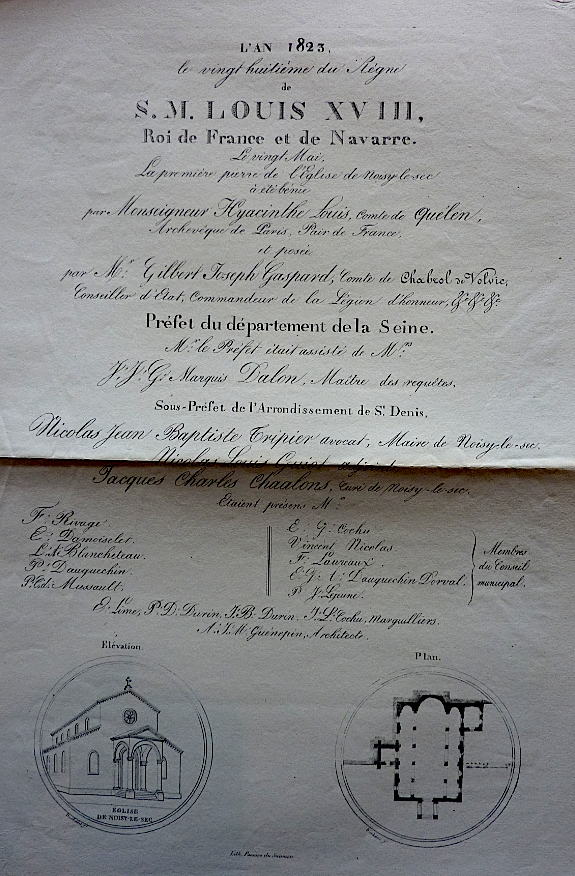 L'AN 1823,
le vingt huitième du Règne
de
S. M. LOUIS XVIII,
Roi de France et de Navarre.
Le vingt Mai,
La première pierre de l'Eglise de Noisy-le-sec
à été bénie
par Monseigneur Hyacinthe Louis, Comte de Quélen,
Archevêque de Paris, Pair de France,
et posée
par Mr. Gilbert Joseph Gaspard, Comte de Chabrol de Volvic,
Conseiller d'Etat, Commandeur de la Légion d'honneur, &c &c &c
Préfet du département de la Seine.
Mr. le Préfet était assisté de Mrs
J. J. G. Marquis Dalon, Maître des requêtes,
Sous-Préfet de l'Arrondissement de St. Denis,
Nicolas Jean Baptiste Tripier avocat, Maire de Noisy-le-sec.
Nicolas Louis
Jacques Charles Chaalons, Curé de Noisy-le-sec.
Etaient présens Mrs
F. Rivage.
E. Damoiselet.
L. A. Blancheteau.
P. Dauquechin.
P. Ed. Mussault.
E. G. Cochu
Vincent Nicolas
F. Laureaux
E. G. A. Dauquechin Dorval.
P. J. Lejune.
Membres
du Conseil
municipal.
E. Lime, P. D. Durin, J. B. Durin, J. L. Cochu, Marguilliers.
A. J. M. Guénepin, Architecte.
Elévation.
Plan.
EGLISE
DE NOISY-LE-SEC